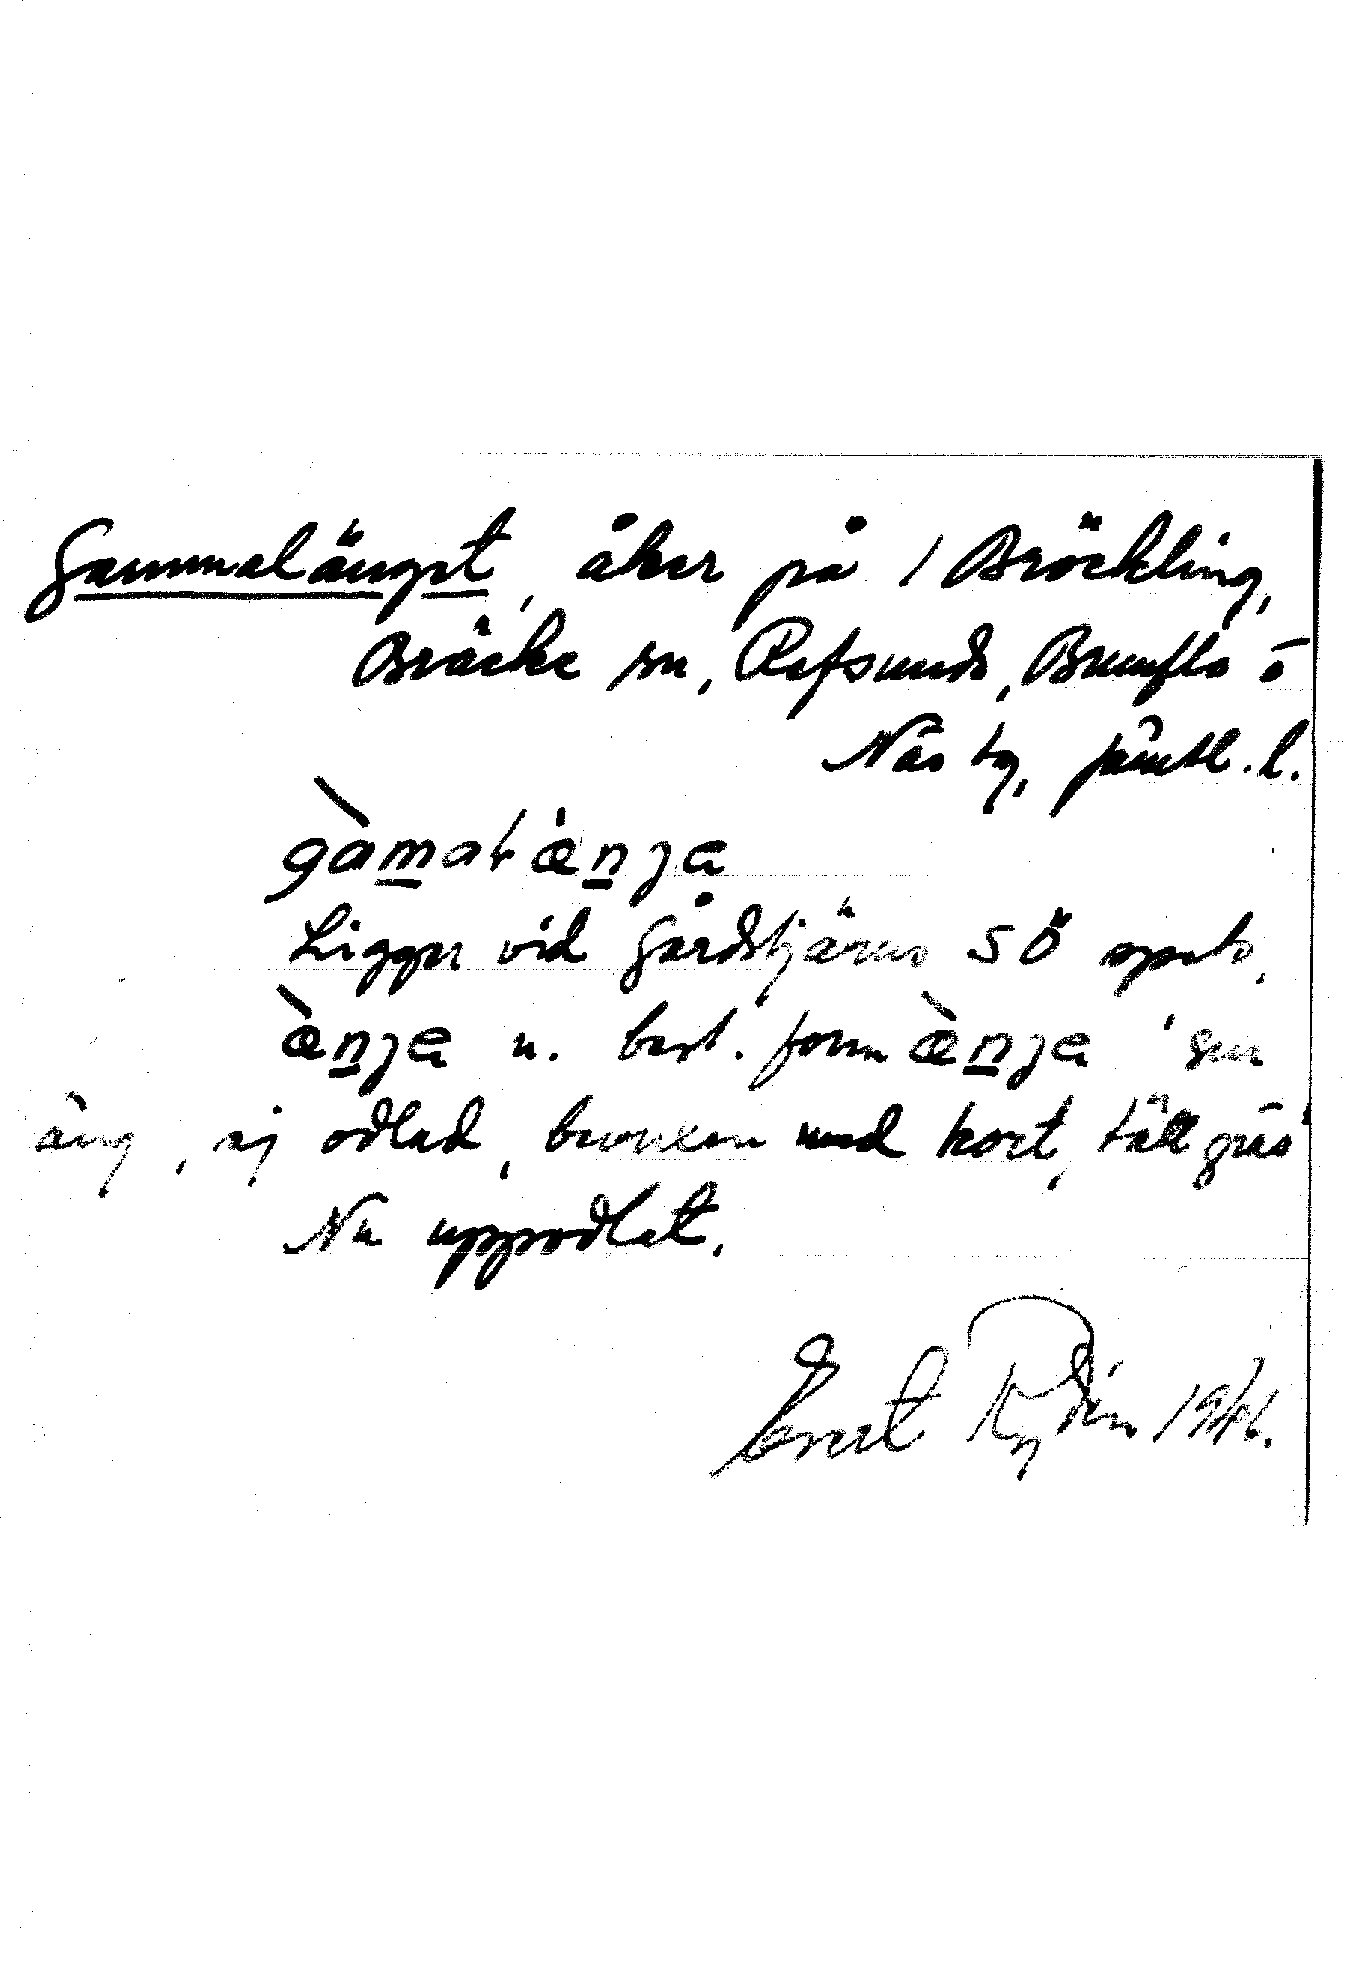 Gammalänget, åker på 1 Bröckling,
Bräcke sn, Refsunds, Brunflo o
Näs tg, Jämtl. l.
gàmaḷænja
Ligger vid Gårdstjärns SÖ spets,
æ̀nja n. best. form æ̀nja '
äng, ej odlad, bevuxen med kort, tätt gräs'
Nu uppodlat.
Evert Rydén 1946.